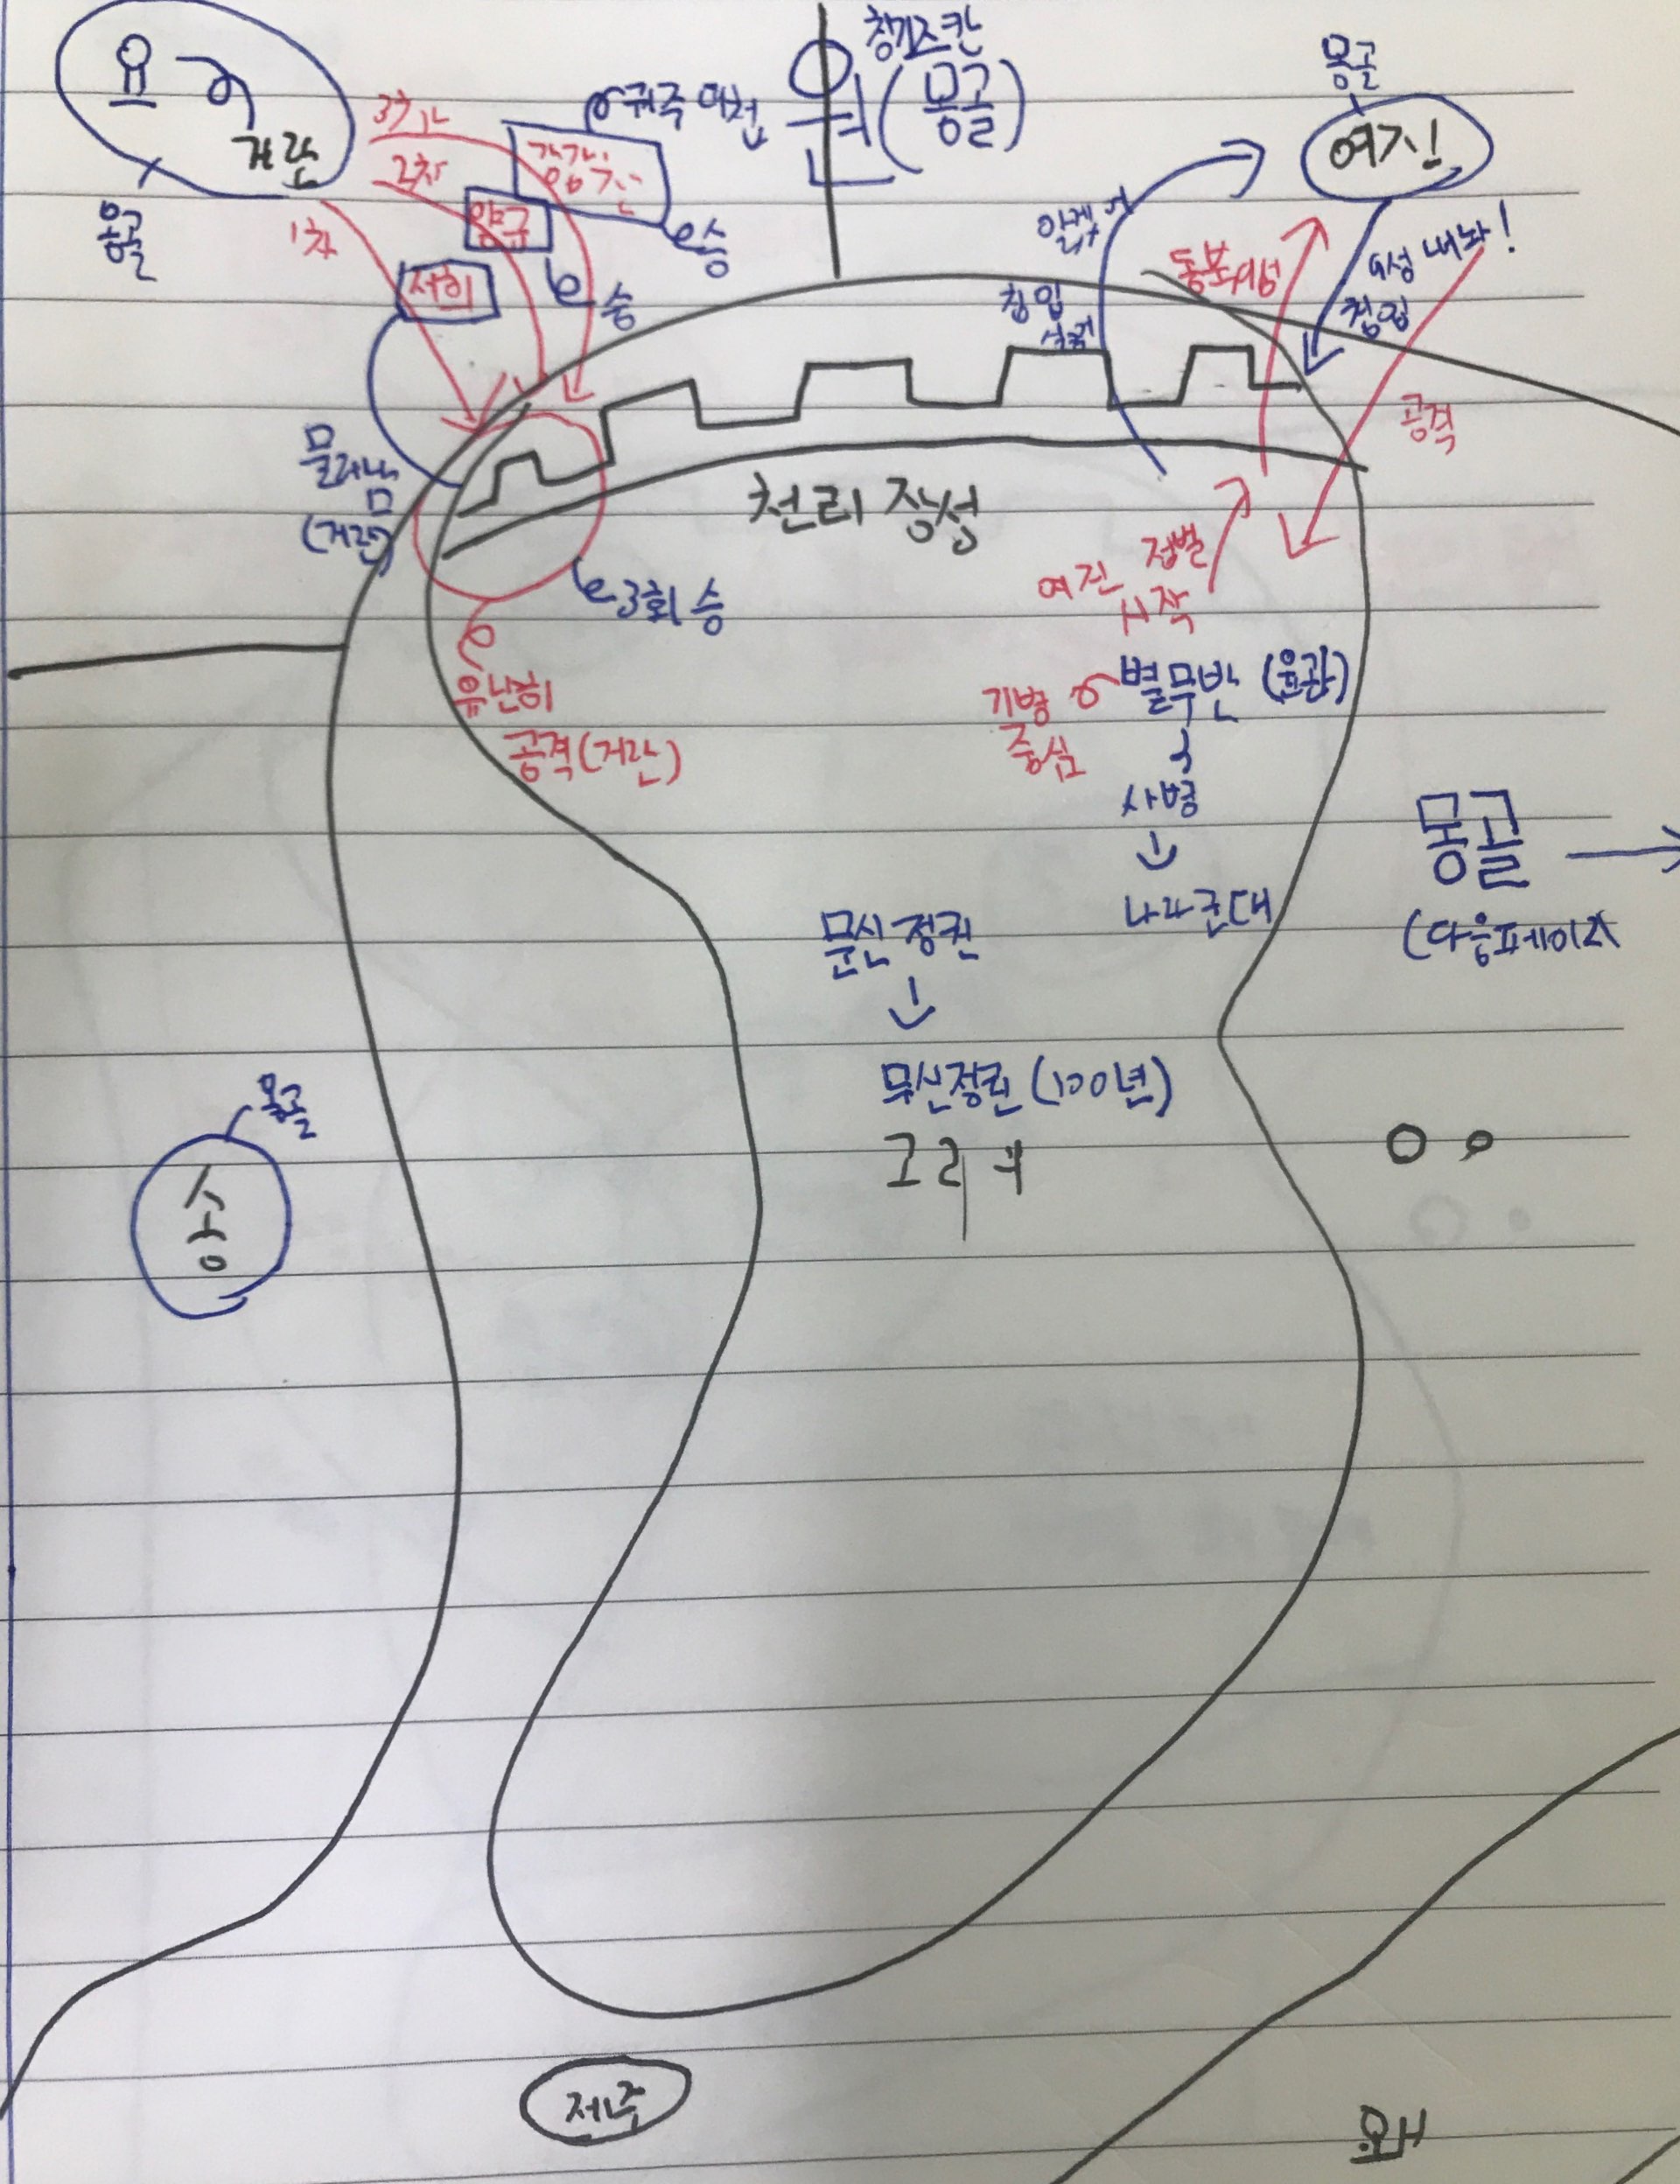 요
거란
몽골
3차
2차
1차
귀주대첩
강감찬
승
양규
승
서희
물러남
(거란)
칭기즈칸
원(몽골)
몽골
여진!
동북9성
9성 내놔!
침입
침입
공격
천리장성
3회 승
유난히
공격(거란)
여진 정벌
시작
별무반 (윤관)
기병
중심
사병
나라군대
문신정권
무신정권 (100년)
몽골
(다음페이지
몽골
송
제주
왜